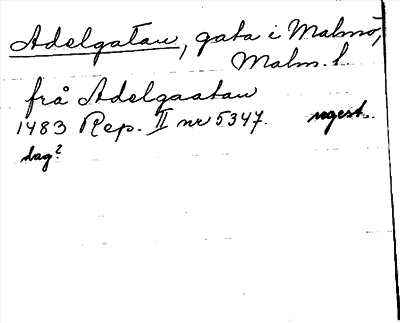 Adelgatan, gata i Malmö,
Malm. l.
frå Adelgaatan
1483 Rep. II nr 5347. regest.
dag?